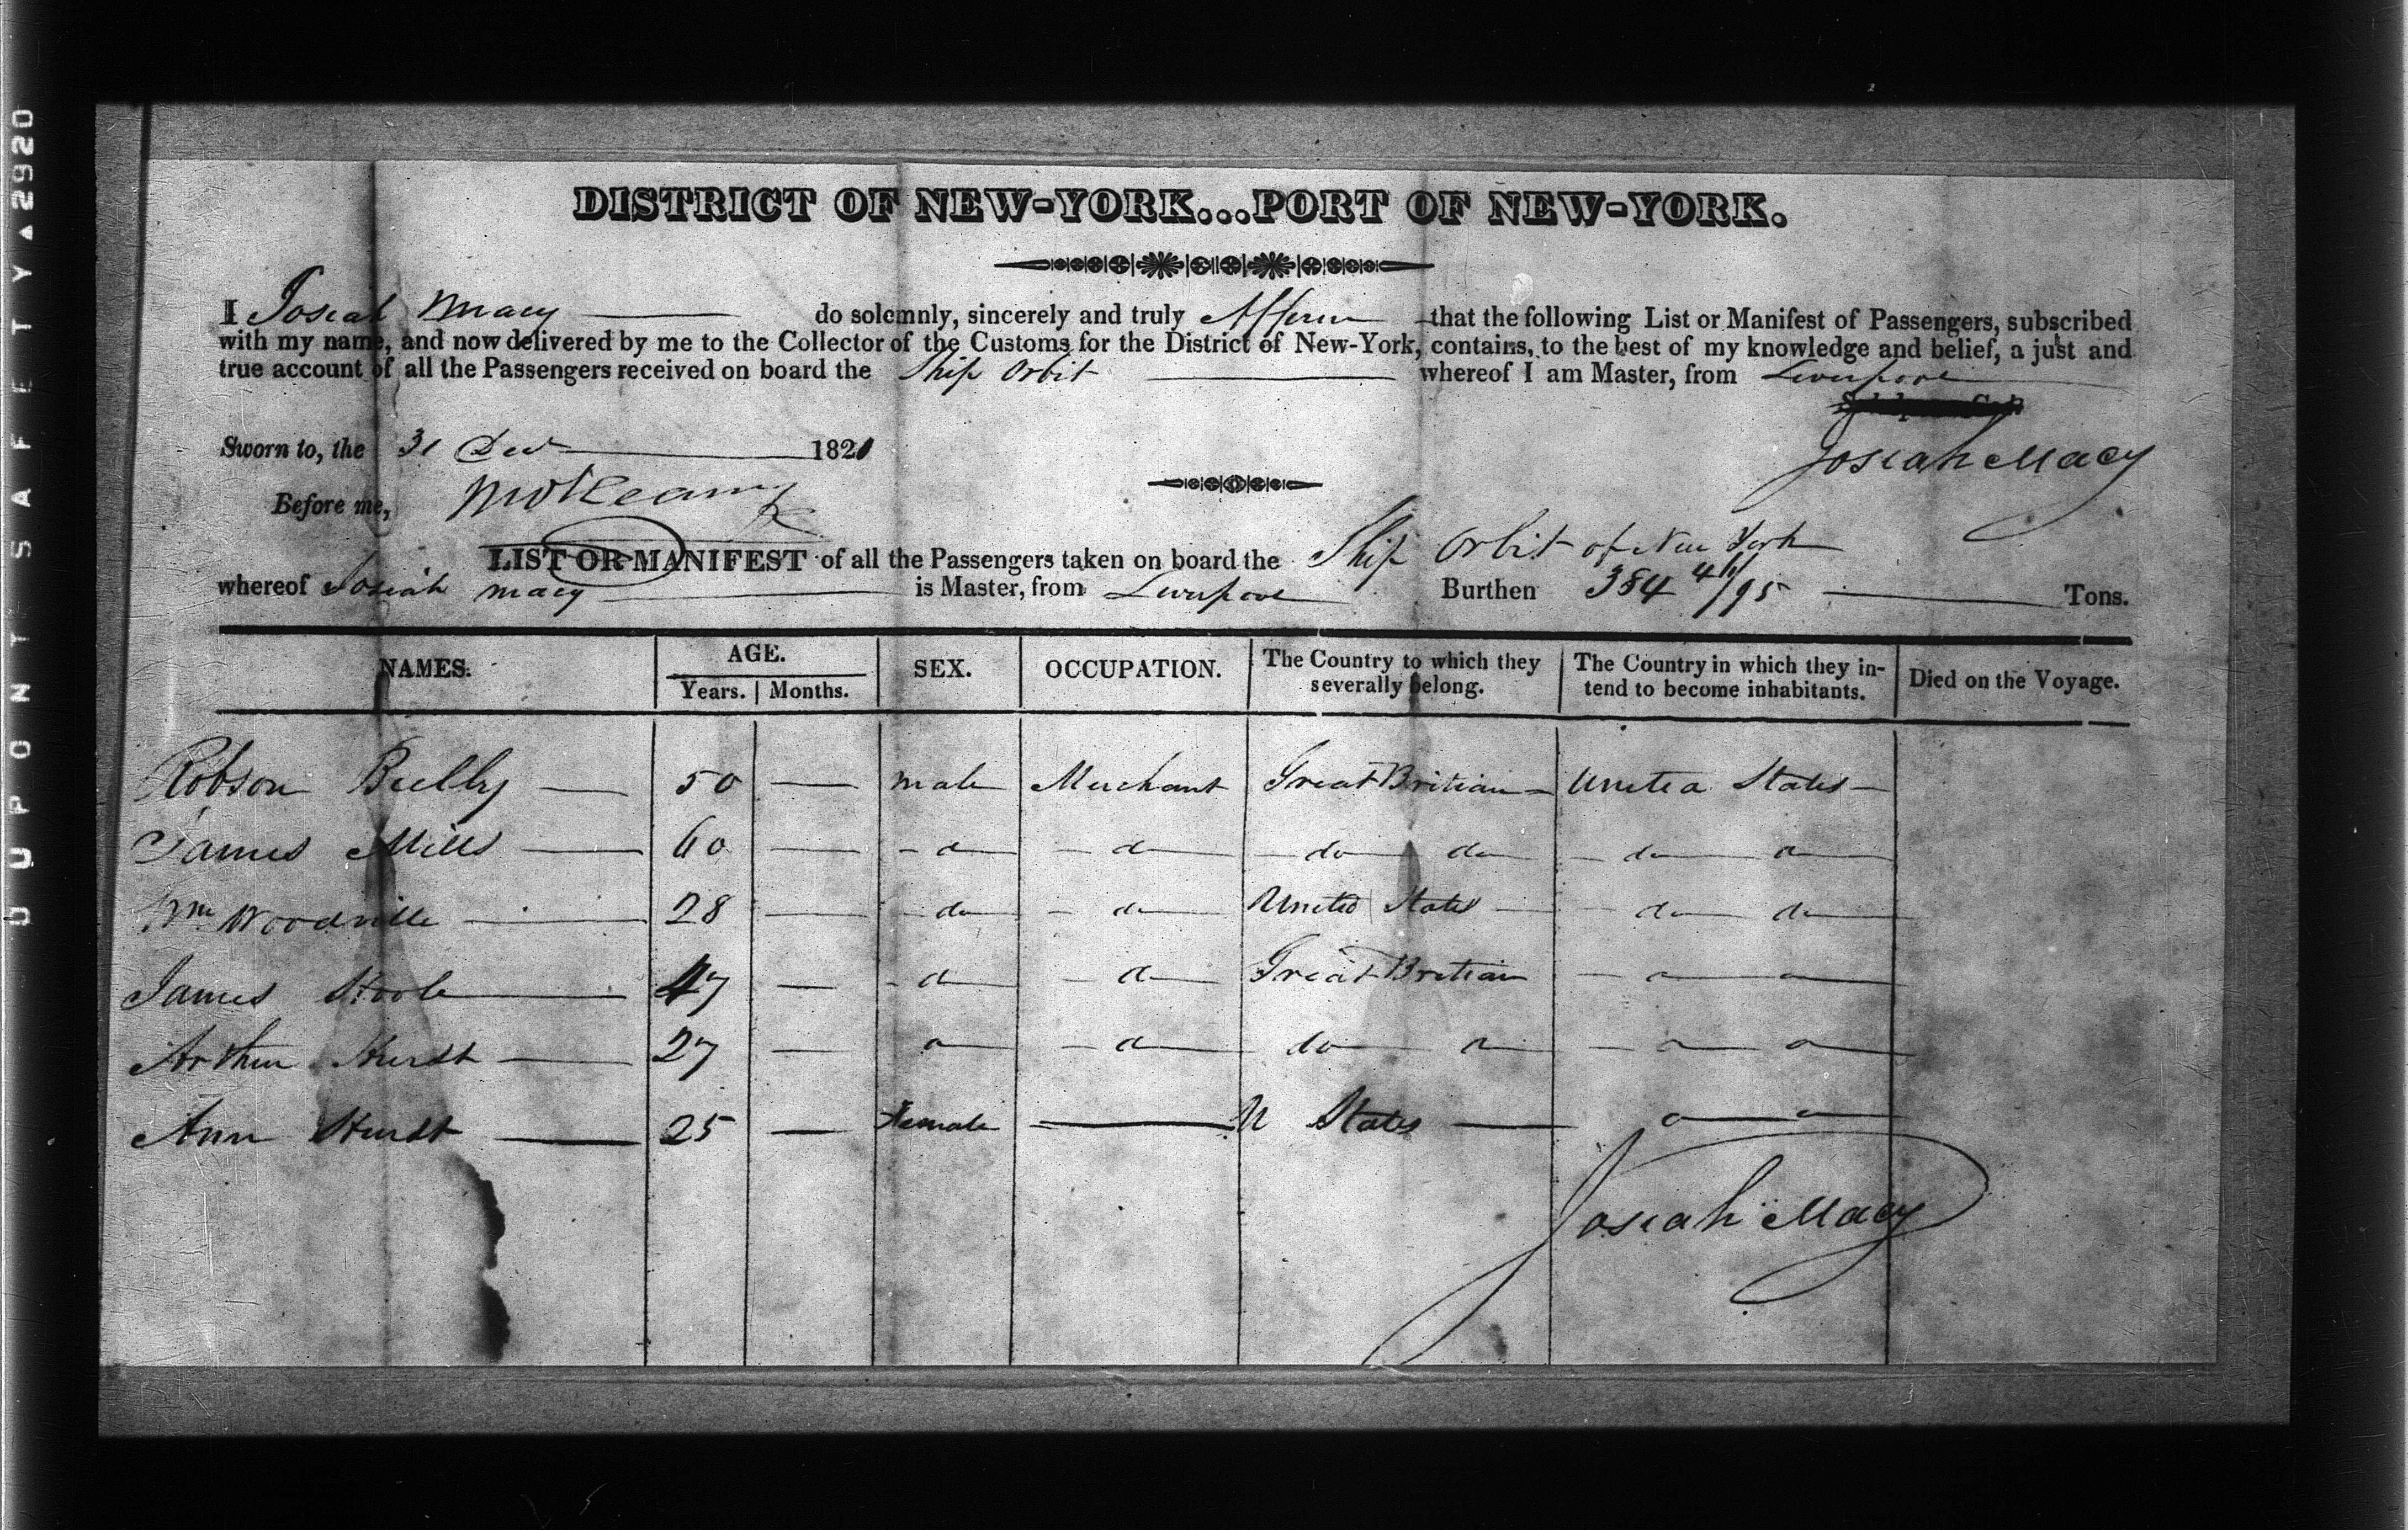 DISTRICT OF NEW-YORK...PORT OF NEW-YORK.
I Josiah Macy do solemnly, sincerely and truly Affirm that the following List or Manifest of Passengers, subscribed
with my name, and now delivered by me to the Collector of the Customs for the District of New-York, contains, to the best of my knowledge and belief, a just and
true account of all the Passengers received on board the Ship Orbit whereof I am Master, from Liverpool
Sworn to, the 31 Dec 1821
Josiah Macy
Before me,
LIST OR MANIFEST of all the Passengers taken on board the Ship Orbit of New York
whereof Josiah Macy is Master, from Liverpool Burthen 384 /95 Tons.
NAMES. AGE. SEX. OCCUPATION. The Country to which they severally belong. The Country in which they intend to become inhabitants. Died on the Voyage.
Years. Months.
Robson 50 — male Merchant Great Britian United States
James Mills 60 — do do do do do do
Wm Woodville 28 — do do United States do do
James 47 — do do Great Britian do do
Arthur Hurst 27 — do do do do do do
Ann Hurst 25 — Female — U States do do
Josiah Macy
DUPONT SAFETY ▲2920